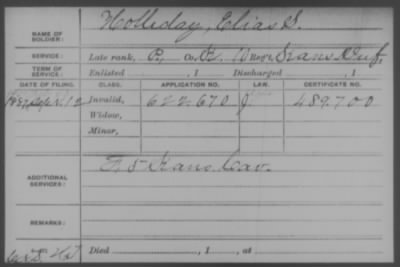 NAME OF SOLDIER: Holliday, Elias S.
SERVICE: Late rank, P, Co. F, 10 Reg't, Kans. Inf.
TERM OF SERVICE: Enlisted , 1 Discharged , 1
DATE OF FILING. CLASS. APPLICATION NO. LAW. CERTIFICATE NO.
Invalid, 622.670 J. 489.700
Widow,
Minor,
ADDITIONAL SERVICES: F. 5 Kans. Cav.
REMARKS:
Died , 1 , at